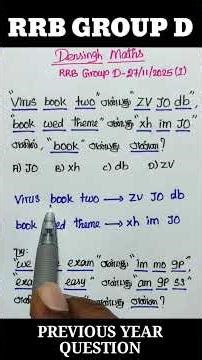 RRB GROUP D
Densingh Maths
RRB Group D-27/11/2025 (I)
"Virus book two" என்பது "ZV JO db",
"book wed theme" என்பது "xh im JO"
எனில், "book" என்பது என்ன?
A) JO B) xh c) db D) ZV
Virus book two → ZV JO db
book wed theme → xh im JO
"we exam" என்பது "im mo gp",
"exam easy" என்பது "am gp s3"
என்பது என்ன?
PREVIOUS YEAR
QUESTION